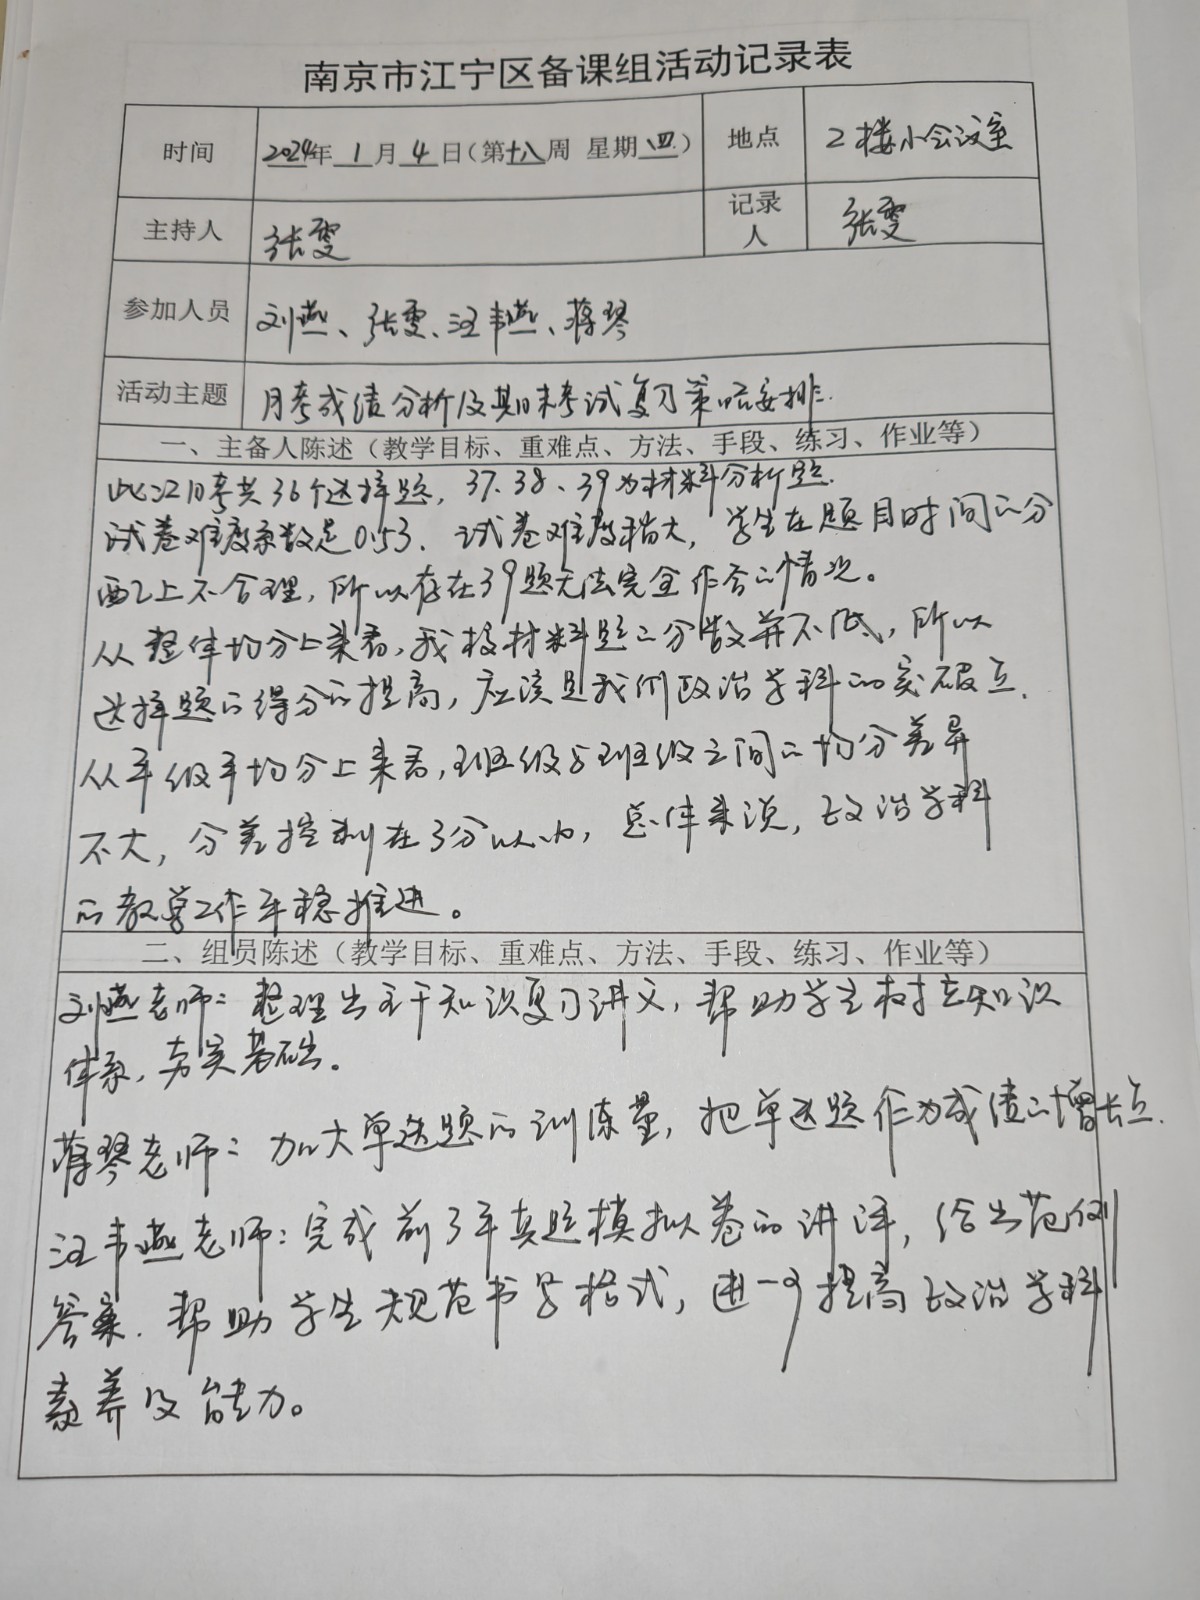 南京市江宁区备课组活动记录表
时间 2024年 1 月 4 日（第十八周 星期 四） 地点 2楼小会议室
主持人 张雯 记录人 张雯
参加人员 刘燕、张雯、汪韦燕、蒋琴
活动主题 月考成绩分析及期末考试复习策略安排.
一、主备人陈述（教学目标、重难点、方法、手段、练习、作业等）
此次月考共36个选择题，37、38、39为材料分析题.
试卷难度系数是0.53. 试卷难度稍大，学生在题目时间的分
配上不合理，所以存在39题无法完全作答的情况。
从整体均分上来看，我校材料题的分数并不低，所以
选择题的得分的提高，应该是我们政治学科的突破点.
从年级平均分上来看，班级与班级之间的均分差异
不大，分差控制在3分以内，总体来说，政治学科
的教学工作平稳推进。
二、组员陈述（教学目标、重难点、方法、手段、练习、作业等）
刘燕老师：整理出主干知识复习讲义，帮助学生树立知识
体系，夯实基础。
蒋琴老师：加大单选题的训练量，把单选题作为成绩的增长点.
汪韦燕老师：完成前3年真题模拟卷的讲评，给出范例
答案. 帮助学生规范书写格式，进一步提高政治学科
素养及能力。